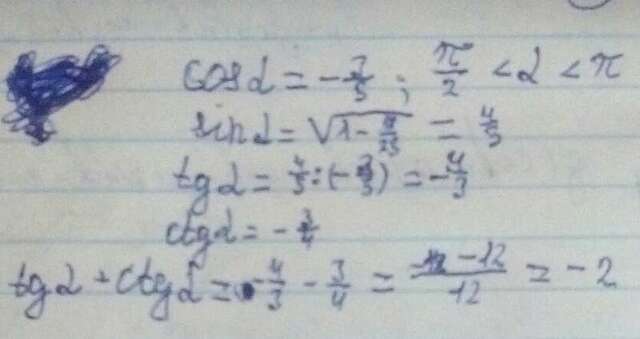 cos α = -3/5 ; π/2 < α < π
sin α = √(1 - 9/25) = 4/5
tg α = 4/5 : (-3/5) = -4/3
ctg α = -3/4
tg α + ctg α = -4/3 - 3/4 = -12/12 = -2